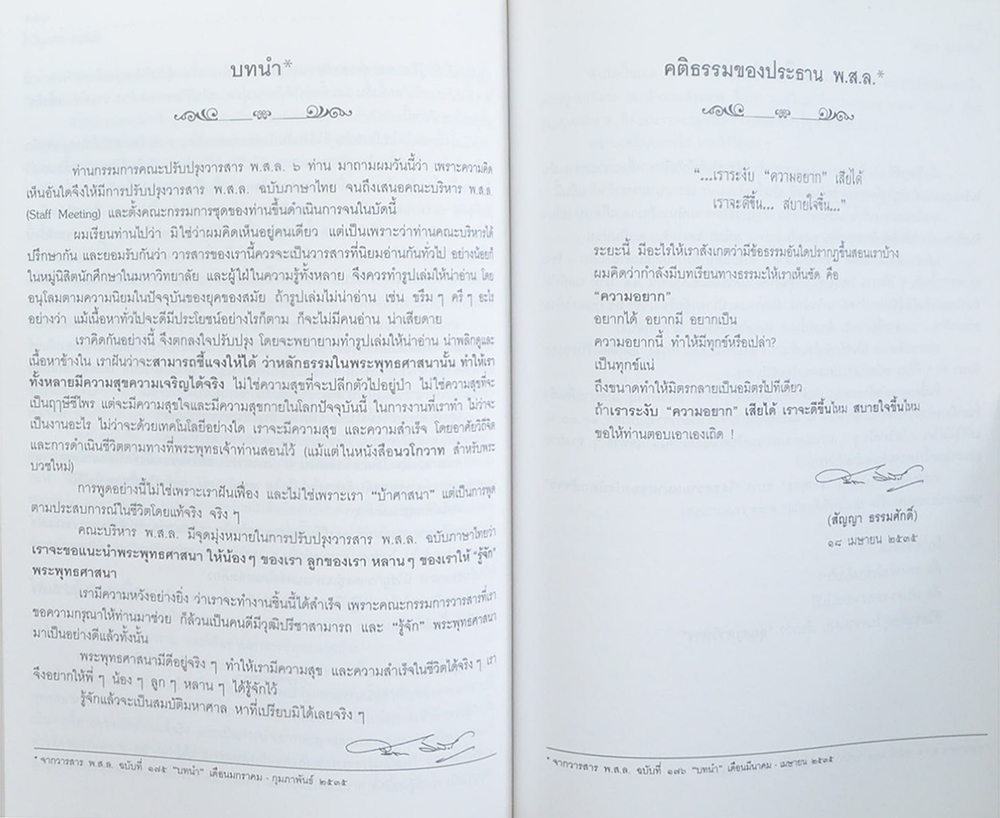 บทนำ*
ท่านกรรมการคณะปรับปรุงวารสาร พ.ส.ล. ๖ ท่าน มาถามผมวันนี้ว่า เพราะความคิด
เห็นอันใดจึงให้มีการปรับปรุงวารสาร พ.ส.ล. ฉบับภาษาไทย จนถึงเสนอคณะบริหาร พ.ส.ล.
(Staff Meeting) และตั้งคณะกรรมการชุดของท่านขึ้นดำเนินการจนในบัดนี้
ผมเรียนท่านไปว่า มิใช่ว่าผมคิดเห็นอยู่คนเดียว แต่เป็นเพราะว่าท่านคณะบริหารได้
ปรึกษากัน และยอมรับกันว่า วารสารของเรานี้ควรจะเป็นวารสารที่นิยมอ่านกันทั่วไป อย่างน้อยก็
ในหมู่นิสิตนักศึกษาในมหาวิทยาลัย และผู้ใฝ่ในความรู้ทั้งหลาย จึงควรทำรูปเล่มให้น่าอ่าน โดย
อนุโลมตามความนิยมในปัจจุบันของยุคของสมัย ถ้ารูปเล่มไม่น่าอ่าน เช่น ขรึม ๆ ครึ ๆ อะไร
อย่างว่า แม้เนื้อหาทั่วไปจะดีมีประโยชน์อย่างไรก็ตาม ก็จะไม่มีคนอ่าน น่าเสียดาย
เราคิดกันอย่างนี้ จึงตกลงใจปรับปรุง โดยจะพยายามทำรูปเล่มให้น่าอ่าน น่าพลิกดูและ
เนื้อหาข้างใน เราฝันว่าจะสามารถชี้แจงให้ได้ ว่าหลักธรรมในพระพุทธศาสนานั้น ทำให้เรา
ทั้งหลายมีความสุขความเจริญได้จริง ไม่ใช่ความสุขที่จะปลีกตัวไปอยู่ป่า ไม่ใช่ความสุขที่จะ
เป็นฤๅษีชีไพร แต่จะมีความสุขใจและมีความสุขกายในโลกปัจจุบันนี้ ในการงานที่เราทำ ไม่ว่าจะ
เป็นงานอะไร ไม่ว่าจะด้วยเทคโนโลยีอย่างใด เราจะมีความสุข และความสำเร็จ โดยอาศัยวิถีจิต
และการดำเนินชีวิตตามทางที่พระพุทธเจ้าท่านสอนไว้ (แม้แต่ในหนังสือนวโกวาท สำหรับพระ
บวชใหม่)
การพูดอย่างนี้ไม่ใช่เพราะเราฝันเฟื่อง และไม่ใช่เพราะเรา “บ้าศาสนา” แต่เป็นการพูด
ตามประสบการณ์ในชีวิตโดยแท้จริง จริง ๆ
คณะบริหาร พ.ส.ล. มีจุดมุ่งหมายในการปรับปรุงวารสาร พ.ส.ล. ฉบับภาษาไทยว่า
เราจะขอแนะนำพระพุทธศาสนา ให้น้อง ๆ ของเรา ลูกของเรา หลาน ๆ ของเราให้ “รู้จัก”
พระพุทธศาสนา
เรามีความหวังอย่างยิ่ง ว่าเราจะทำงานชิ้นนี้ได้สำเร็จ เพราะคณะกรรมการวารสารที่เรา
ขอความกรุณาให้ท่านมาช่วย ก็ล้วนเป็นคนดีมีวุฒิปรีชาสามารถ และ “รู้จัก” พระพุทธศาสนา
มาเป็นอย่างดีแล้วทั้งนั้น
พระพุทธศาสนามีดีอยู่จริง ๆ ทำให้เรามีความสุข และความสำเร็จในชีวิตได้จริง ๆ เรา
จึงอยากให้พี่ ๆ น้อง ๆ ลูก ๆ หลาน ๆ ได้รู้จักไว้
รู้จักแล้วจะเป็นสมบัติมหาศาล หาที่เปรียบมิได้เลยจริง ๆ
* จากวารสาร พ.ส.ล. ฉบับที่ ๑๘๕ “บทนำ” เดือนมกราคม - กุมภาพันธ์ ๒๕๓๕
คติธรรมของประธาน พ.ส.ล.*
“...เราระงับ “ความอยาก” เสียได้
เราจะดีขึ้น... สบายใจขึ้น...”
ระยะนี้ มีอะไรให้เราสังเกตว่ามีข้อธรรมอันใดปรากฏขึ้นสอนเราบ้าง
ผมคิดว่ากำลังมีบทเรียนทางธรรมะให้เราเห็นชัด คือ
“ความอยาก”
อยากได้ อยากมี อยากเป็น
ความอยากนี้ ทำให้มีทุกข์หรือเปล่า?
เป็นทุกข์แน่
ถึงขนาดทำให้มิตรกลายเป็นอมิตรไปทีเดียว
ถ้าเราระงับ “ความอยาก” เสียได้ เราจะดีขึ้นไหม สบายใจขึ้นไหม
ขอให้ท่านตอบเอาเองเถิด !
(สัญญา ธรรมศักดิ์)
๑๘ เมษายน ๒๕๓๕
* จากวารสาร พ.ส.ล. ฉบับที่ ๑๘๖ “บทนำ” เดือนมีนาคม - เมษายน ๒๕๓๕